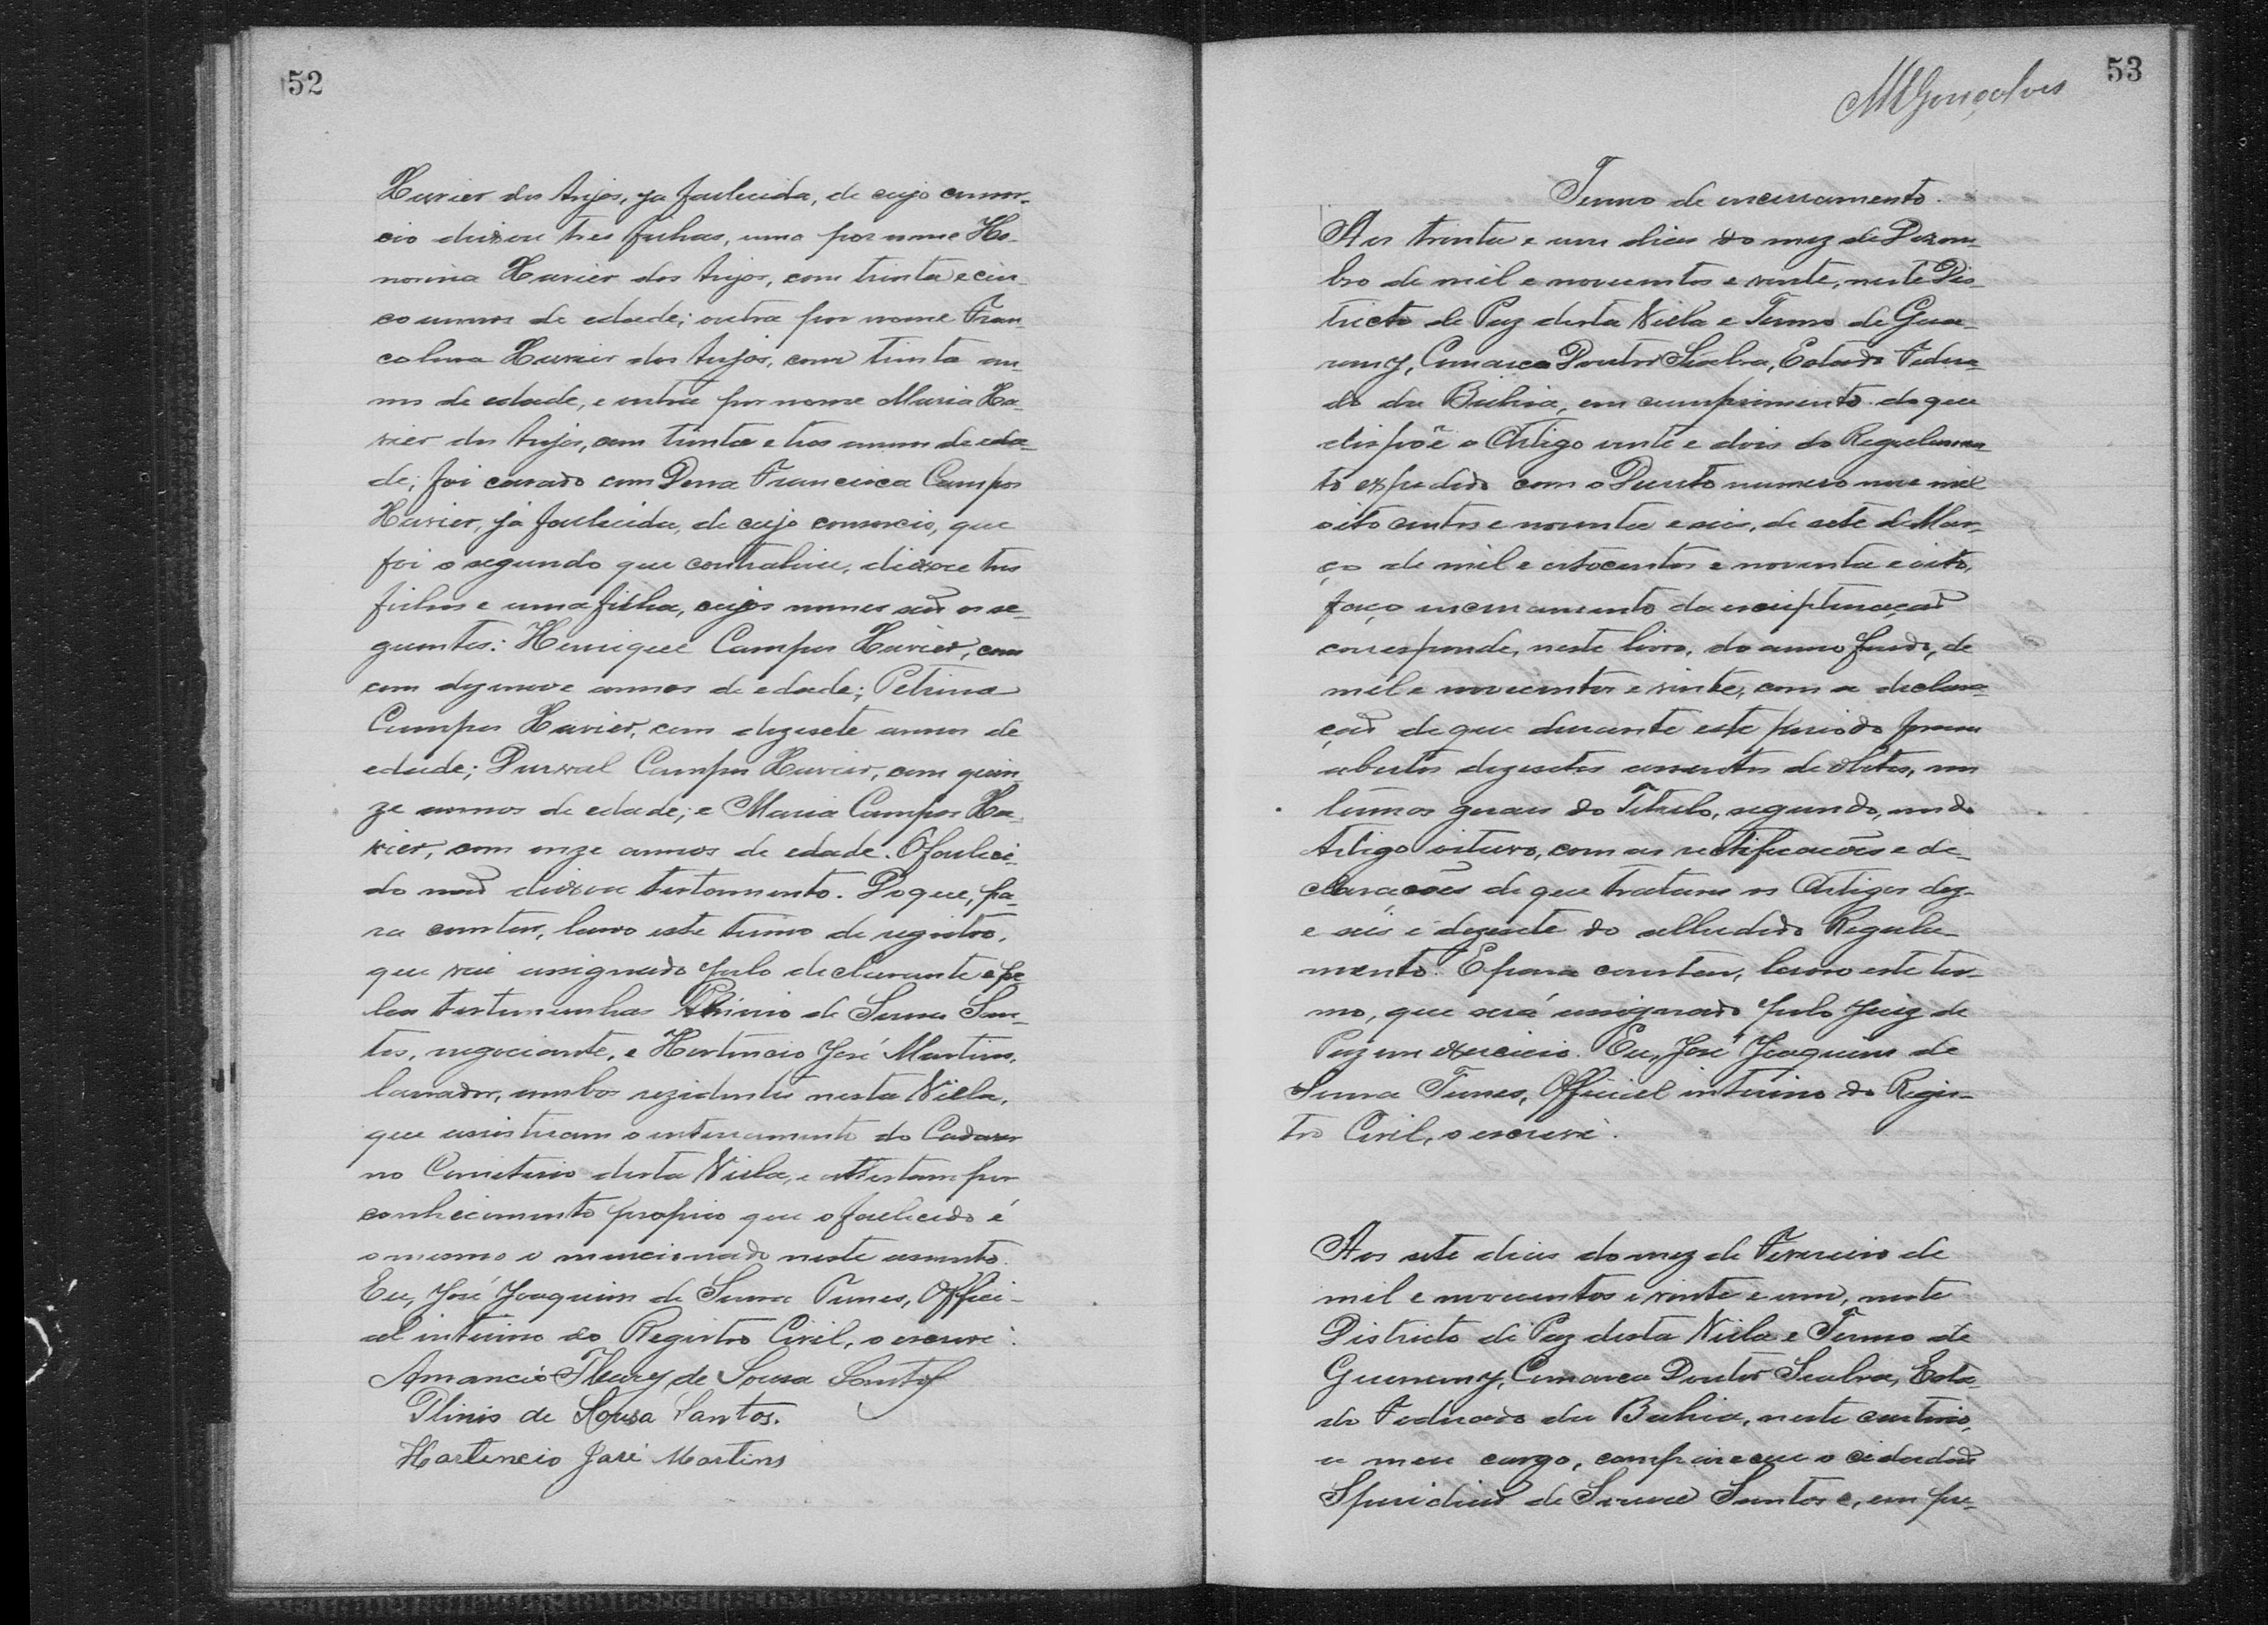 52
Xavier dos Anjos, ja fallecida, de cujo consor-
cio deixou tres filhas, uma por nome Ho-
norina Xavier dos Anjos, com trinta e cin-
co annos de edade; outra por nome Fran-
colina Xavier dos Anjos, com trinta an-
nos de edade, e outra por nome Maria Xa-
vier dos Anjos, com trinta e tres annos de eda-
de; foi casado com Dona Francisca Campos
Xavier, já fallecida, de cujo consorcio, que
foi o segundo que contrahiu, deixou tres
filhos e uma filha, cujos nomes são os se-
guintes: Henrique Campos Xavier, com
com dezenove annos de edade; Petrina
Campos Xavier, com dezesete annos de
edade; Durval Campos Xavier, com quin-
ze annos de edade; e Maria Campos Xa-
vier, com onze annos de edade. O falleci-
do não deixou testamento. Do que, pa-
ra constar, lavro este termo de registro,
que vai assignado pelo declarante e pe-
las testemunhas Plinio de Sousa San-
tos, negociante, e Hortencio José Martins,
lavrador, ambos rezidentes nesta Villa,
que assistiram o enterramento do Cadaver
no Cemiterio desta Villa, e attestam por
conhecimento proprio que o fallecido é
o mesmo o mencionado neste assento.
Eu, José Joaquim de Sousa Tunes, Offici-
al interino do Registro Civil, o escrevi.
Amancio Fleury de Sousa Santos
Plinio de Sousa Santos.
Hortencio José Martins
53
MGonçalves
Termo de encerramento.
Aos trinta e um dias do mez de Dezem-
bro de mil e novecentos e vinte, neste Dis-
tricto de Paz desta Villa e Termo de Gua-
rany, Comarca Doutor Seabra, Estado Federa-
do da Bahia, em cumprimento do que
dispõe o Artigo vinte e dois do Regulamen-
to expedido com o Decreto numero nove mil
oito centos e noventa e seis, de sete de Mar-
ço de mil e oitocentos e noventa e oito,
faço encerramento da escripturação
corresponde, neste livro, do anno findo, de
mil e novecentos e vinte, com a declara-
ção de que durante este periodo foram
abertos dezesetes assentos de obitos, nos
termos geraes do Titulo, segundo, no do
Artigo oitavo, com as rectificações e de-
clarações de que tratam os Artigos dez-
e seis e dezesete do alludido Regula-
mento. E para constar, lavro este ter-
mo, que será assignado pelo Juiz de
Paz em exercicio. Eu, José Joaquim de
Sousa Tunes, Official interino do Regis-
tro Civil, o escrevi.
Aos sete dias do mez de Fevereiro de
mil e novecentos e vinte e um, neste
Districto de Paz desta Villa e Termo de
Guarany, Comarca Doutor Seabra, Esta-
do Federado da Bahia, neste cartorio,
a meu cargo, compareceu o cidadão
Spiridião de Sousa Santos e, em pre-